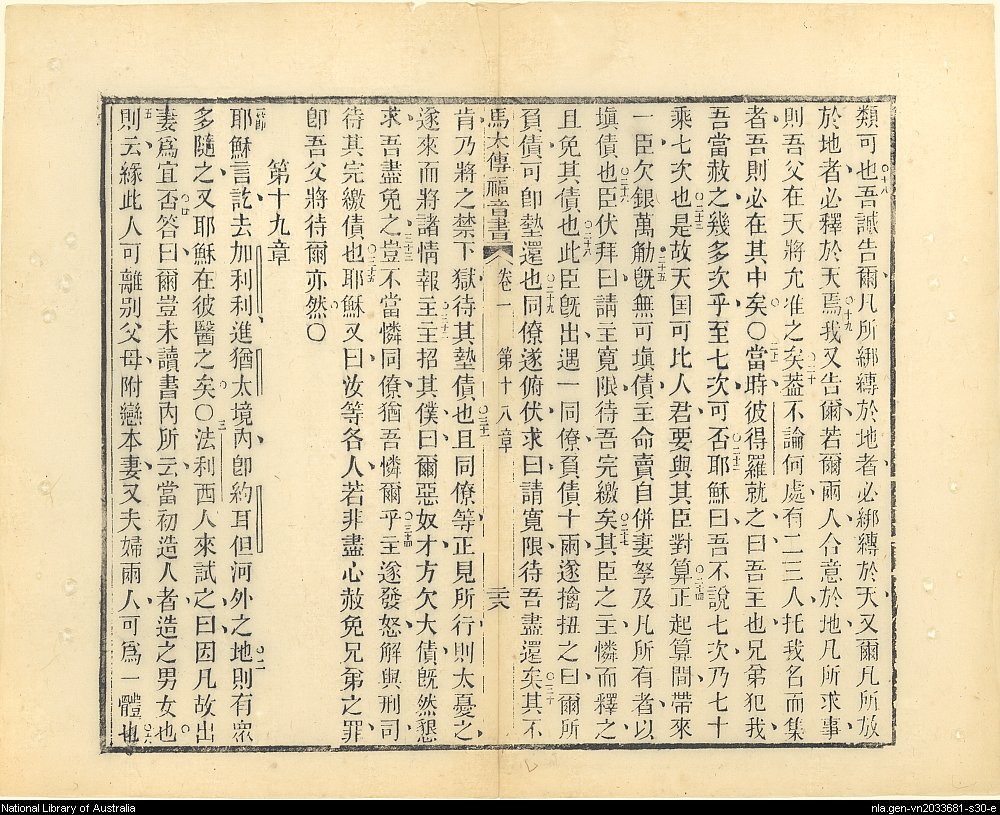 類可也○十八吾誠告爾凡所綁縛於地者必綁縛於天又爾凡所放
於地者必釋於天焉○十九我又告爾若爾兩人合意於地凡所求事
則吾父在天將允准之矣○二十葢不論何處有二三人托我名而集
者吾則必在其中矣○當時彼得羅就之曰吾主也兄弟犯我
吾當赦之幾多次乎至七次可否○二十二耶穌曰吾不說七次乃七十
乘七次也○二十三是故天国可比人君要與其臣對算○二十四正起算間帶來
一臣欠銀萬觔○二十五旣無可塡債主命賣自併妻孥及凡所有者以
塡債也○二十六臣伏拜曰請主寬限待吾完繳矣○二十七其臣之主憐而釋之
且免其債也○二十八此臣旣出遇一同僚負債十兩遂擒扭之曰爾所
負債可卽墊還也○二十九同僚遂俯伏求曰請寬限待吾盡還矣○三十其不
馬太傳福音書 卷一 第十八章 三六
肯乃將之禁下獄待其墊債也○三十一且同僚等正見所行則太憂之
遂來而將諸情報主○三十二主招其僕曰爾惡奴才方欠大債旣然懇
求吾盡免之○三十三豈不當憐同僚猶吾憐爾乎○三十四主遂發怒解與刑司
待其完繳債也○三十五耶穌又曰汝等各人若非盡心赦免兄弟之罪
卽吾父將待爾亦然○
第十九章
耶穌言訖去加利利進猶太境內卽約耳但河外之地○二則有衆
多隨之又耶穌在彼醫之矣○三法利西人來試之曰因凡故出
妻爲宜否○四答曰爾豈未讀書內所云當初造人者造之男女也○
五則云緣此人可離别父母附戀本妻又夫婦兩人可爲一體也○六
National Library of Australia
nla.gen-vn2033681-s30-e